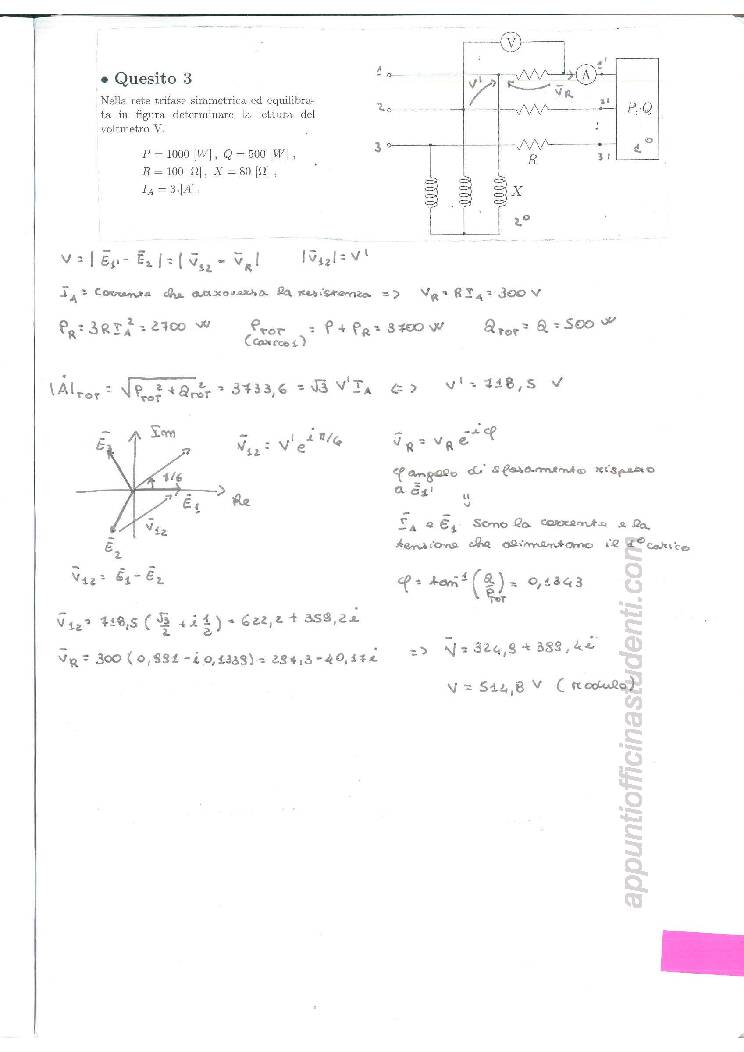 • Quesito 3
Nella rete trifase simmetrica ed equilibra-
ta in figura determinare la lettura del
voltmetro V.
P = 1000 [W] , Q = 500 [W] ,
R = 100 [Ω] , X = 80 [Ω] ,
I_A = 3 [A] .
V
1 V' V̄_R A 1'
2 2' P, Q
3 R 3' 1°
X
2°
V = | Ē_1' - Ē_2 | = | V̄_12 - V̄_R | |V̄_12| = V'
Ī_A = corrente che attraversa la resistenza => V_R = R I_A = 300 V
P_R = 3 R I_A² = 2700 W P_TOT = P + P_R = 3700 W Q_TOT = Q = 500 W
(carico 1)
|Á|_TOT = √(P_TOT² + Q_TOT²) = 3733,6 = √3 V' I_A <=> V' = 718,5 V
Im Ē_3 V̄_12 = V' e^{iπ/6} V̄_R = V_R e^{-iφ}
1/6 Ē_1 Re φ angolo di sfasamento rispetto
a Ē_1'
V̄_12 Ē_2 Ī_A e Ē_1 sono la corrente e la
tensione che alimentano il 1° carico
V̄_12 = Ē_1 - Ē_2 φ = tan⁻¹ (Q/P_TOT) = 0,1343
V̄_12 = 718,5 (√3/2 + i 1/2) = 622,2 + 359,2 i
V̄_R = 300 (0,991 - i 0,1339) = 297,3 - 40,17 i => V̄ = 324,9 + 399,4 i
V = 514,8 V (modulo)
appuntiofficinastudenti.com